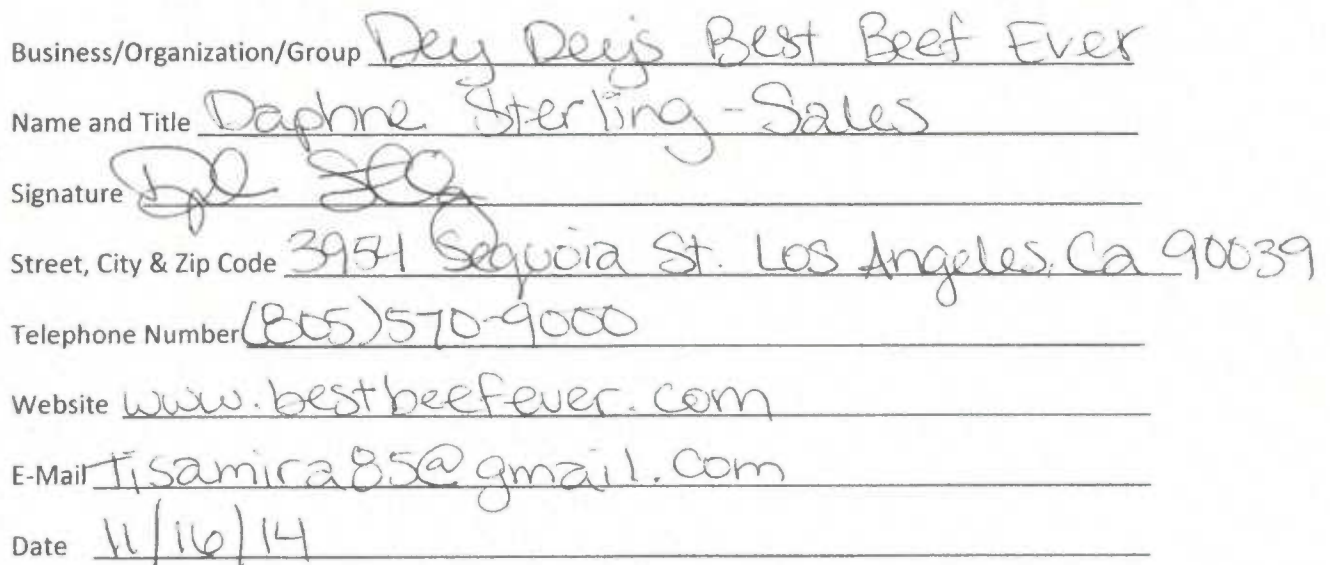 Business/Organization/Group Dey Dey's Best Beef Ever
Name and Title Daphne Sterling - Sales
Signature
Street, City & Zip Code 3954 Sequoia St. Los Angeles, Ca 90039
Telephone Number (805)570-9000
Website www.bestbeefever.com
E-Mail Tisamira85@gmail.com
Date 11/16/14